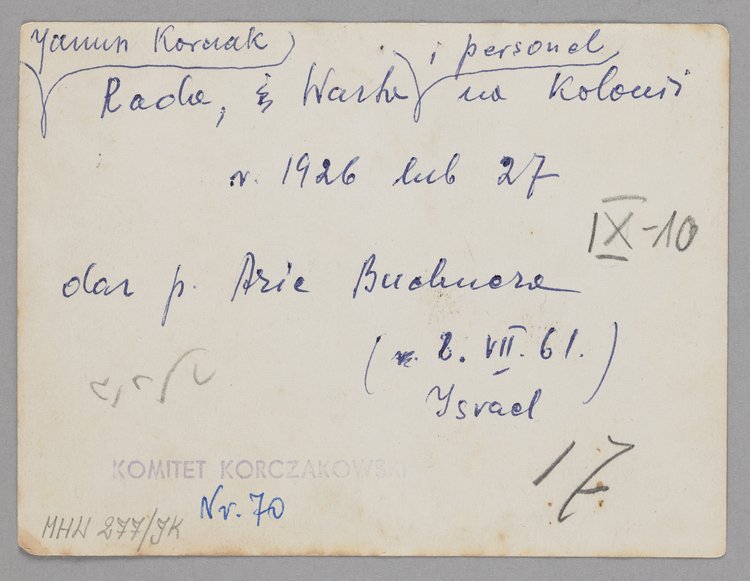 Janusz Korczak i personel
Rada, i Warta na Kolonii
r. 1926 lub 27
IX-10
dar p. Arie Buchnera
( 2. VII. 61. )
Israel
KOMITET KORCZAKOWSKI
Nr. 70
17
MHW 277/JK